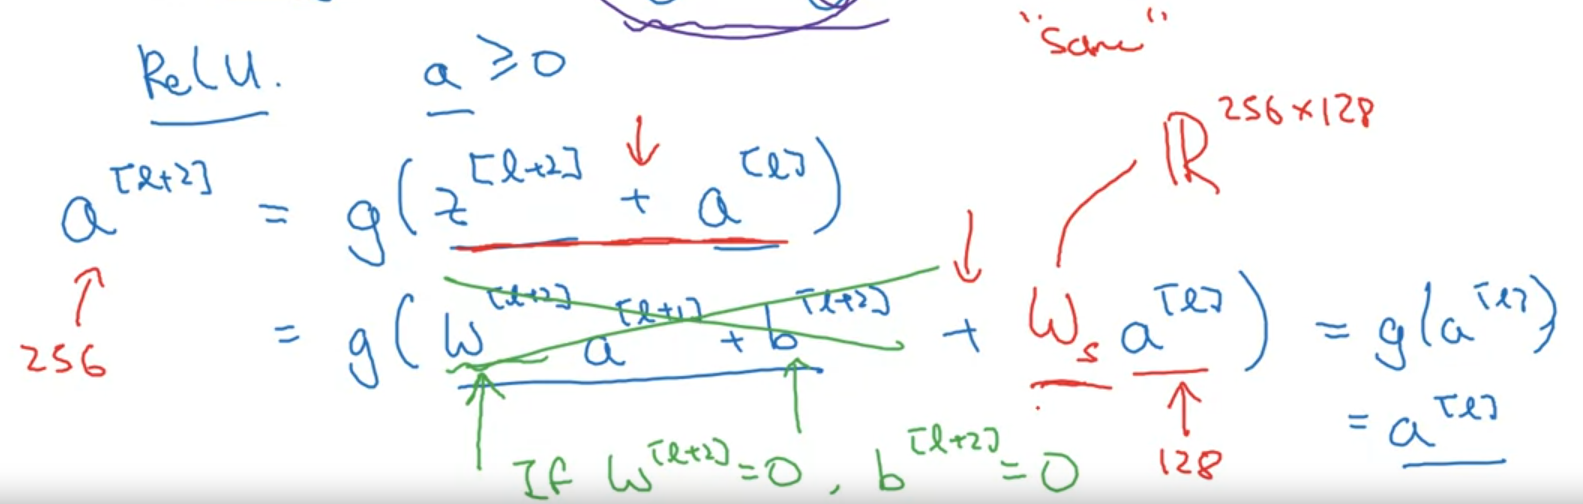 "same"
ReLU. a ≥ 0
ℝ^{256×128}
a^{[l+2]} = g(z^{[l+2]} + a^{[l]})
= g(W^{[l+2]} a^{[l+1]} + b^{[l+2]} + W_s a^{[l]}) = g(a^{[l]})
256
= a^{[l]}
If W^{[l+2]} = 0, b^{[l+2]} = 0
128